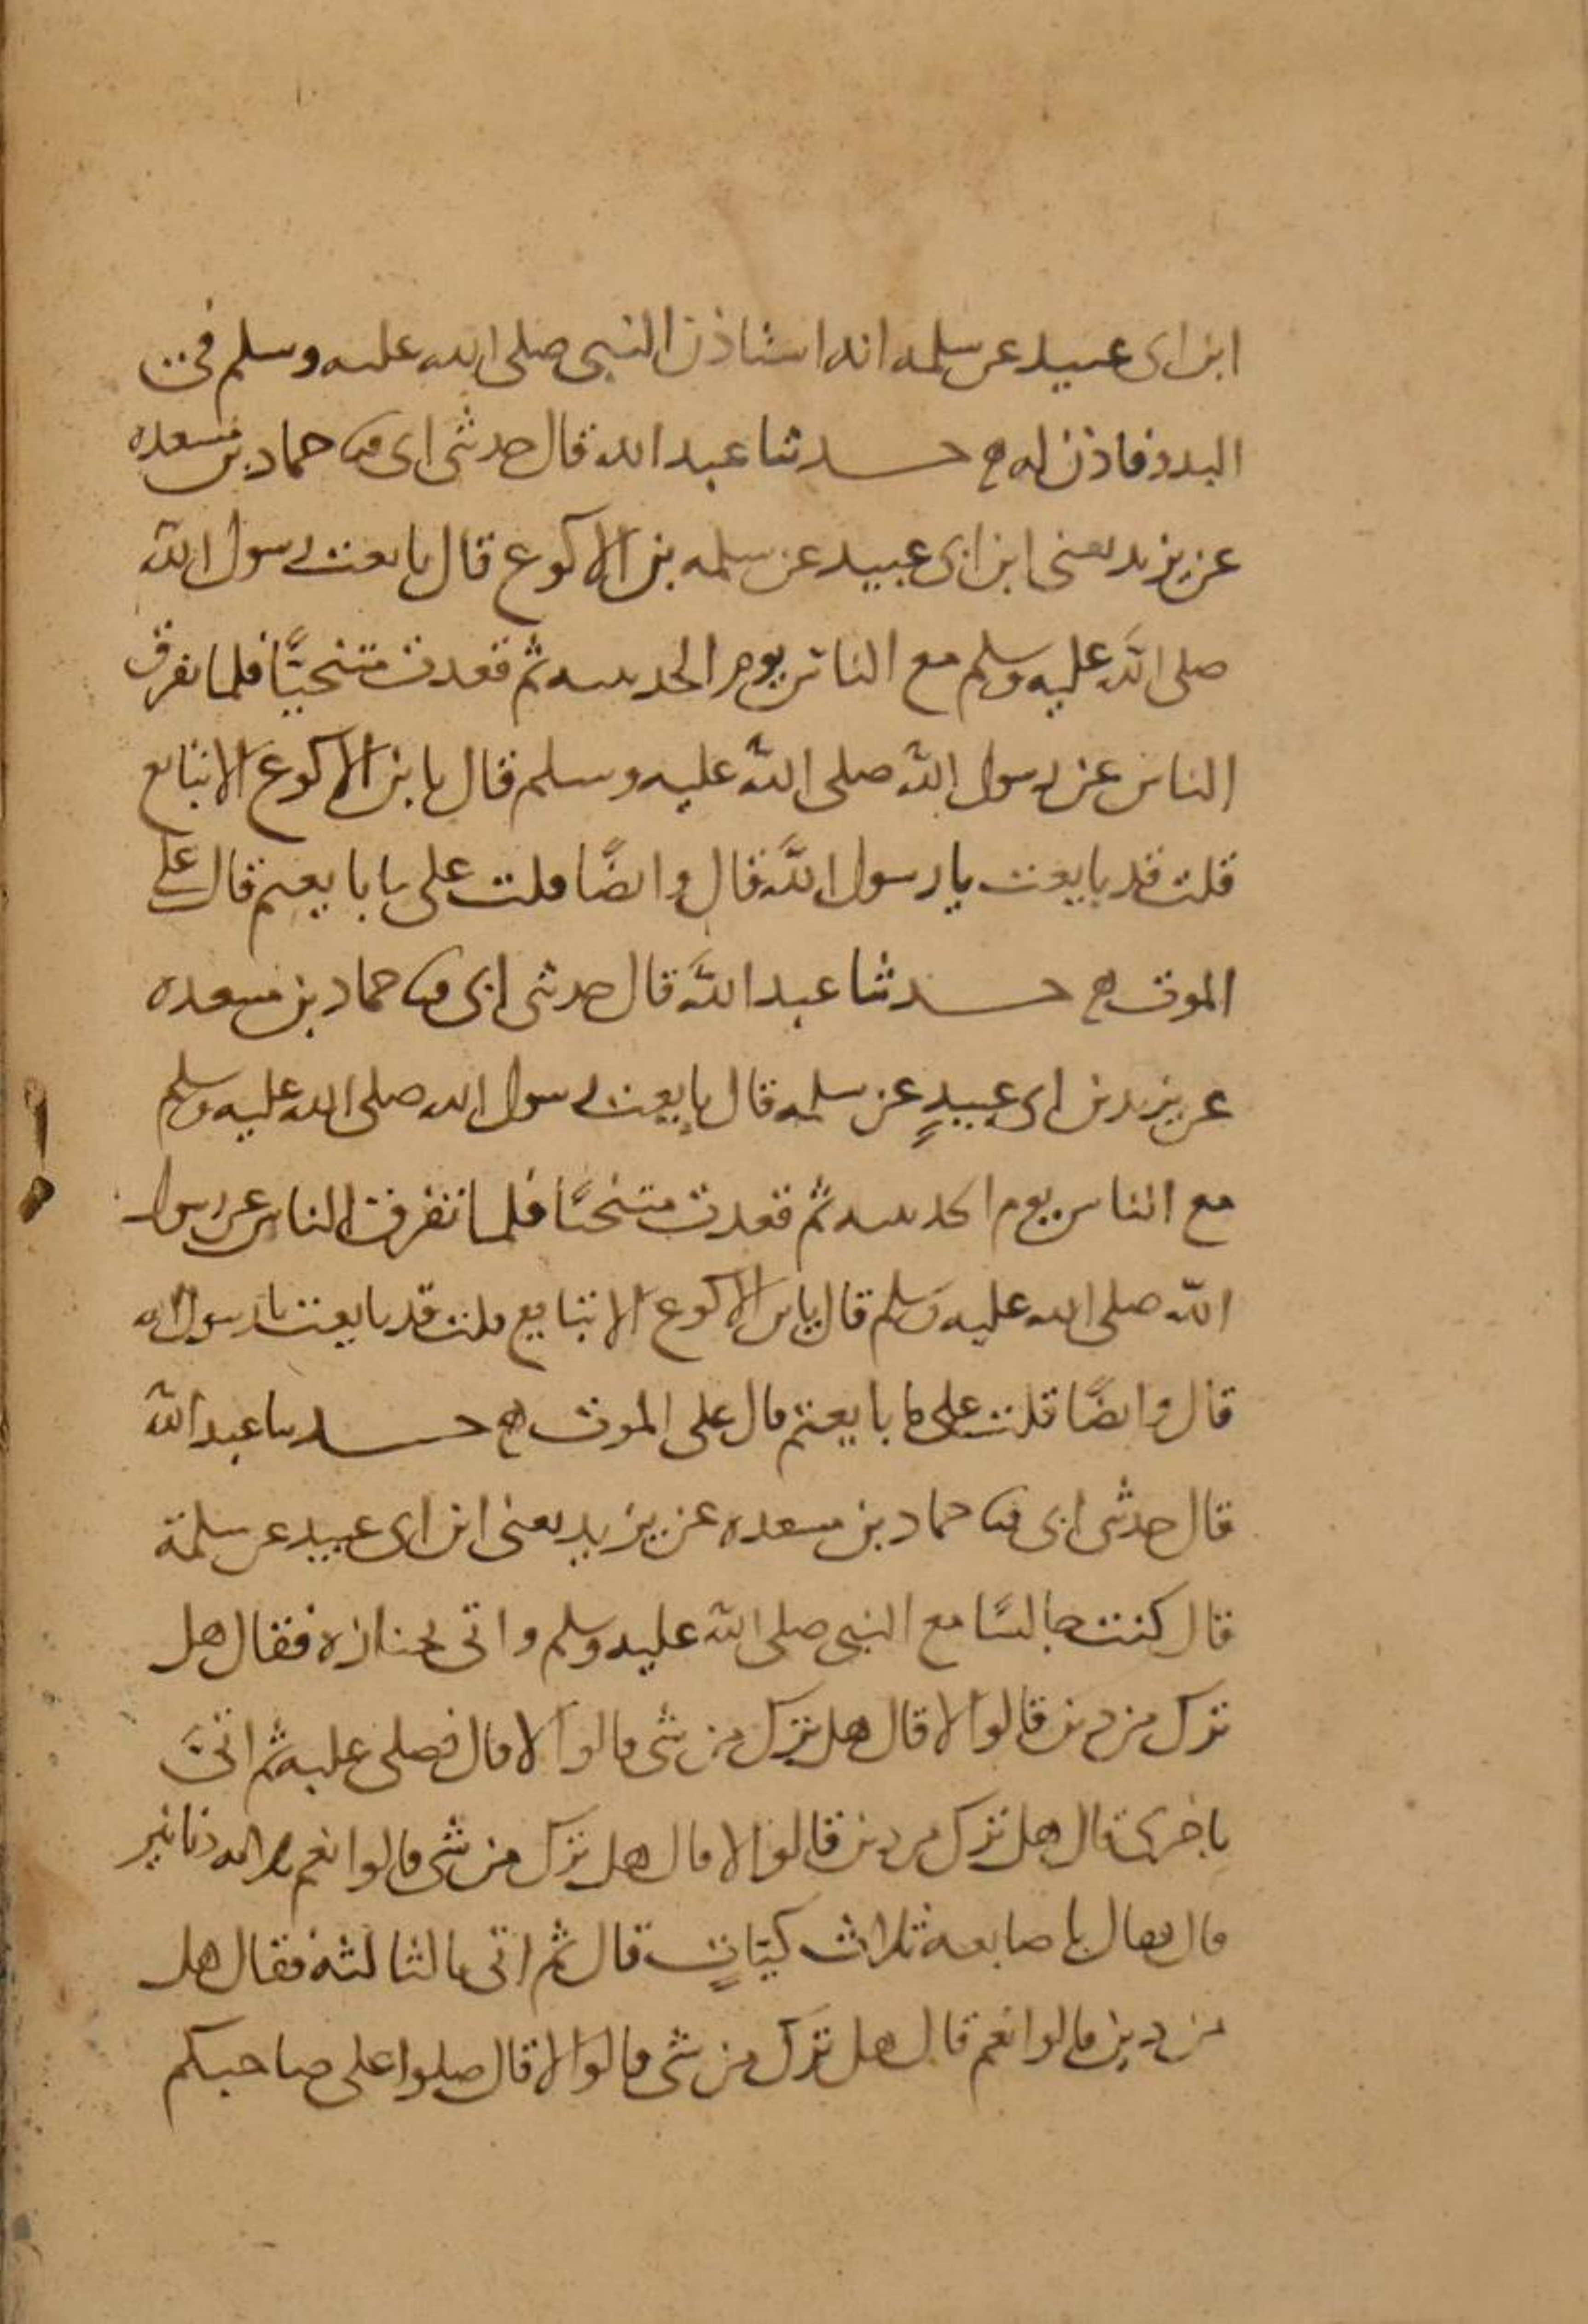 ابن ابى عبيد عن سلمه انه استاذن النبى صلى الله عليه وسلم فى
البدو فاذن له ح حدثنا عبد الله قال حدثنى ابى ثنا حماد بن مسعده
عن يزيد يعنى ابن ابى عبيد عن سلمه بن الاكوع قال بايعت رسول الله
صلى الله عليه وسلم مع الناس يوم الحديبيه ثم قعدت متنحيًا فلما تفرق
الناس عن رسول الله صلى الله عليه وسلم قال يا بن الاكوع الا تبايع
قلت قد بايعت يا رسول الله قال وايضًا قلت على ما بايعتم قال على
الموت ح حدثنا عبد الله قال حدثنى ابى ثنا حماد بن مسعده
عن يزيد بن ابى عبيدٍ عن سلمه قال بايعت رسول الله صلى الله عليه وسلم
مع الناس يوم الحديبيه ثم قعدت متنحيًا فلما تفرق الناس عن رسول
الله صلى الله عليه وسلم قال يابن الاكوع الا تبايع قلت قد بايعت يا رسول الله
قال وايضًا قلت على ما بايعتم قال على الموت ح حدثنا عبد الله
قال حدثنى ابى ثنا حماد بن مسعده عن يزيد يعنى ابن ابى عبيد عن سلمة
قال كنت جالسًا مع النبى صلى الله عليه وسلم واتى بجنازه فقال هل
ترك من دين قالوا لا قال هل ترك من شى قالوا لا قال فصلى عليه ثم اتى
باخرى قال هل ترك من دين قالوا لا قال هل ترك من شى قالوا نعم ثلاثه دنانير
قال فقال باصابعه ثلاث كيّاتٍ قال ثم اتى بالثالثه فقال هل
من دين قالوا نعم قال هل ترك من شى قالوا لا قال صلوا على صاحبكم